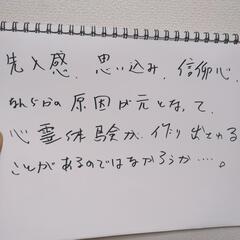 先入感、思い込み、信仰心、
なんらかの原因が元となって
心霊体験が、作り出される
ことがあるのではなかろうか…。